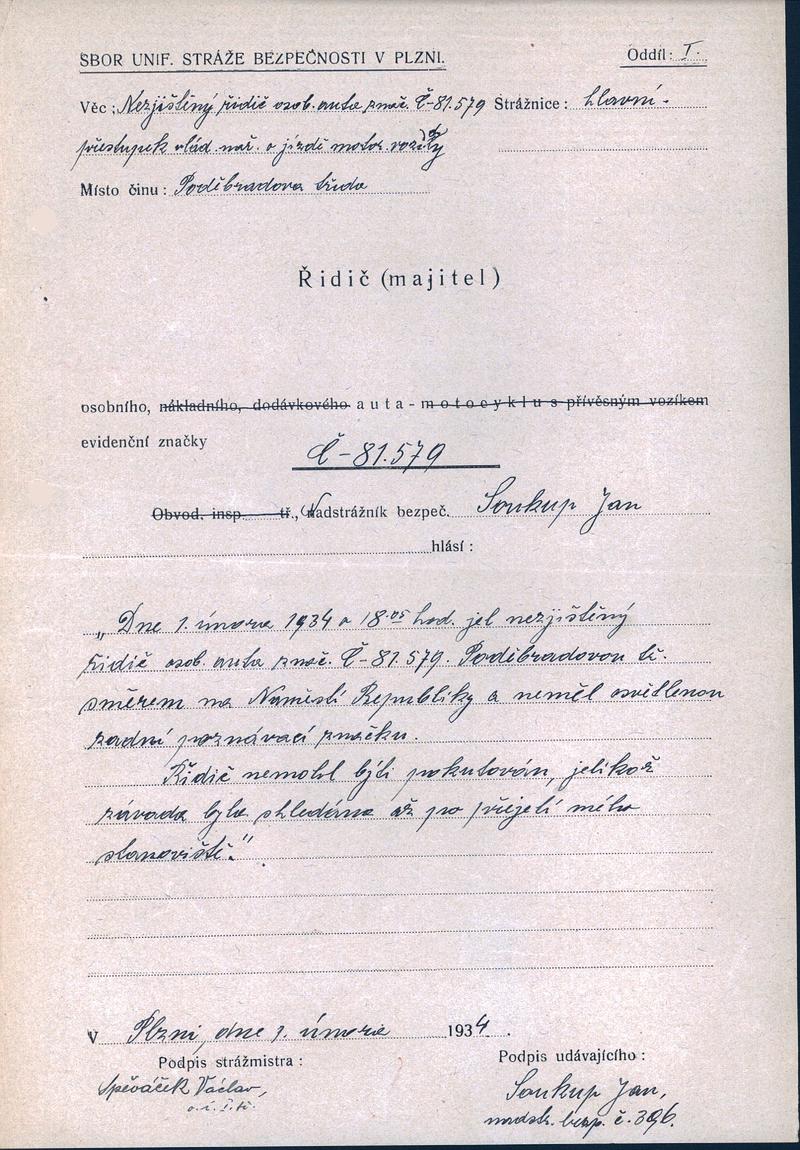 SBOR UNIF. STRÁŽE BEZPEČNOSTI V PLZNI.
Oddíl: I.
Věc: Nezjištěný řidič osob. auta znač. Č-81.579 Strážnice: hlavní.
přestupek vlád. nař. o jízdě motor. vozidly
Místo činu: Poděbradova třída
Řidič (majitel)
osobního, nákladního, dodávkového auta - motocyklu s přívěsným vozíkem
evidenční značky
Č-81.579
Obvod. insp. tř., Nadstrážník bezpeč. Soukup Jan
hlásí:
„Dne 1. února 1934 o 18.05 hod. jel nezjištěný
řidič osob. auta znač. Č-81.579. Poděbradovou tř.
směrem na Náměstí Republiky a neměl osvětlenou
zadní poznávací značku.
Řidič nemohl býti pokutován, jelikož
závada byla shledána až po přejetí mého
stanoviště."
V Plzni, dne 1. února 1934.
Podpis strážmistra: Podpis udávajícího:
Spěváček Václav, Soukup Jan,
o. i. I. tř. nadstr. bezp. č. 396.